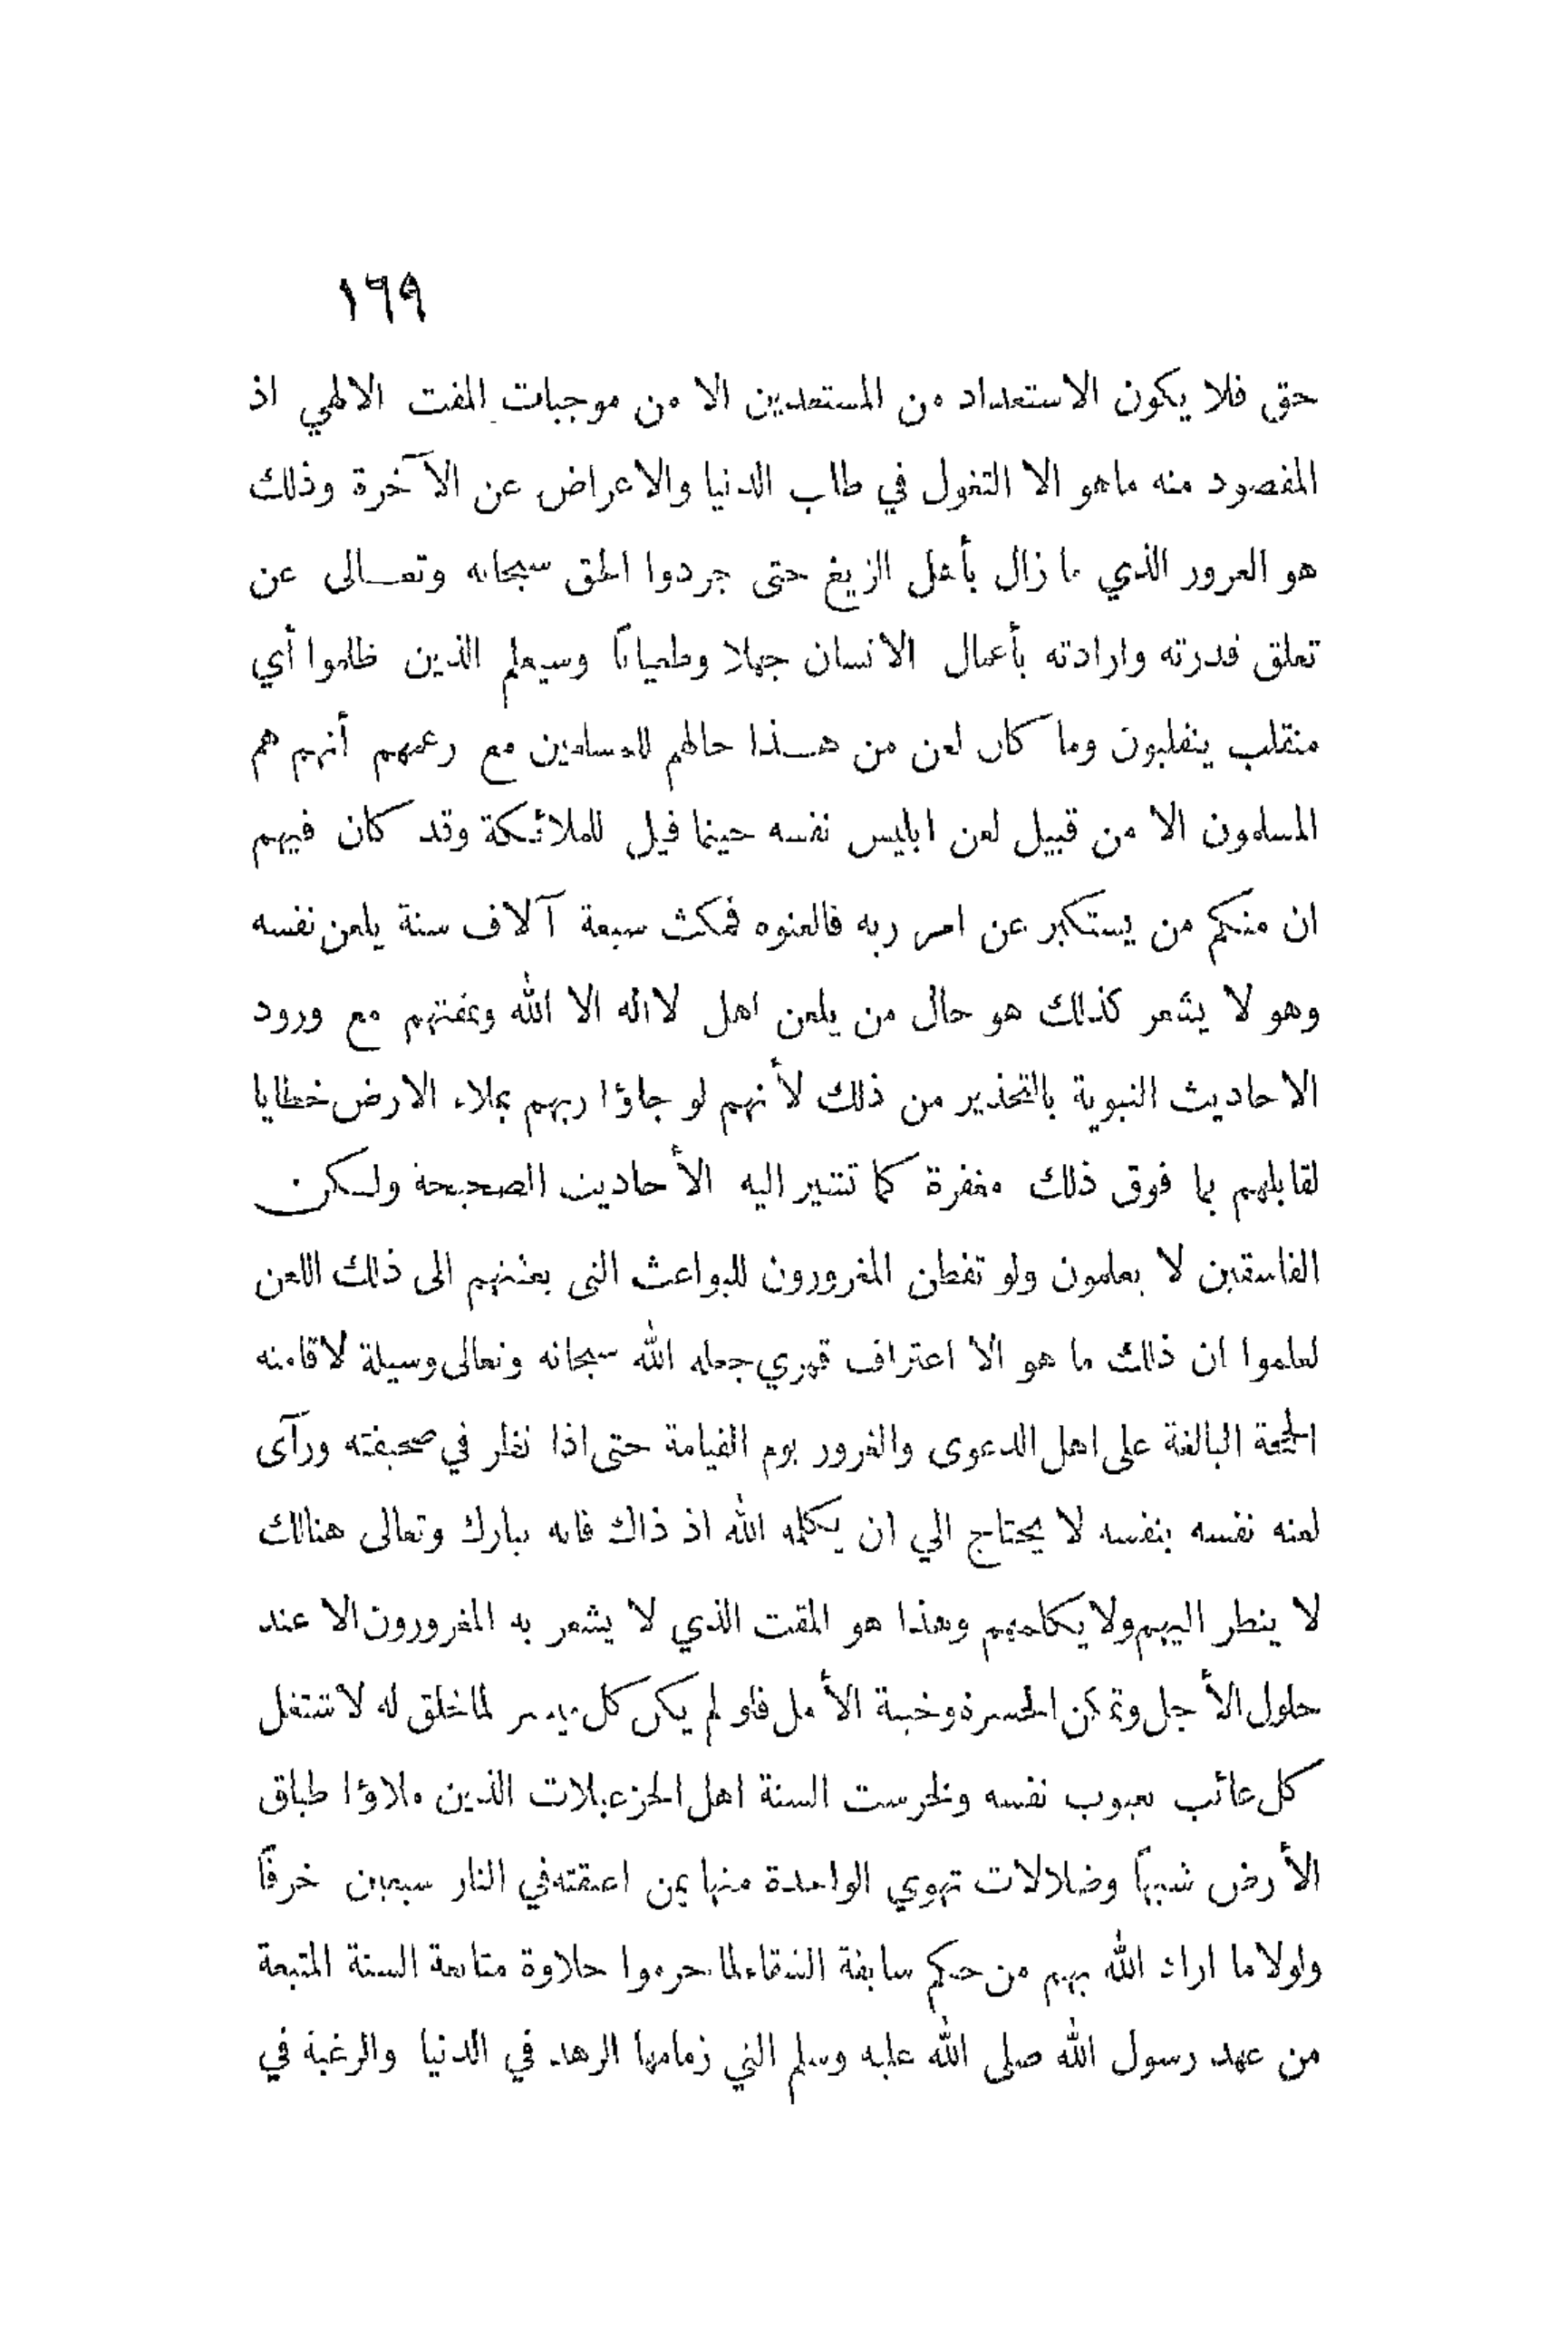 ١٦٩
حق فلا يكون الاستعداد من المستعدين الا من موجبات المقت الالهي اذ
المقصود منه ماهو الا التغول في طلب الدنيا والاعراض عن الآخرة وذلك
هو الغرور الذي ما زال بأهل الزيغ حتى جردوا الحق سبحانه وتعـالى عن
تعلق قدرته وارادته بأعمال الانسان جهلا وطغيانًا وسيعلم الذين ظلموا أي
منقلب ينقلبون وما كان لعن من هـذا حالهم للمسلمين مع زعمهم أنهم هم
المسلمون الا من قبيل لعن ابليس نفسه حينما قيل للملائكة وقد كان فيهم
ان منكم من يستكبر عن امر ربه فالعنوه فمكث سبعة آلاف سنة يلعن نفسه
وهو لا يشعر كذلك هو حال من يلعن اهل لااله الا الله ويمقتهم مع ورود
الاحاديث النبوية بالتحذير من ذلك لأنهم لو جاؤا ربهم بملاء الارض خطايا
لقابلهم بما فوق ذلك مغفرة كما تشير اليه الأحاديث الصحيحة ولـكن
الفاسقين لا يعلمون ولو تفطن المغرورون للبواعث التي بعثتهم الى ذلك اللعن
لعلموا ان ذلك ما هو الا اعتراف قهري جعله الله سبحانه وتعالى وسيلة لاقامته
الحجة البالغة على اهل الدعوى والغرور يوم القيامة حتى اذا نظر في صحيفته ورآى
لعنه نفسه بنفسه لا يحتاج الي ان يكلمه الله اذ ذاك فانه تبارك وتعالى هنالك
لا ينظر اليهم ولا يكلمهم وهذا هو المقت الذي لا يشعر به المغرورون الا عند
حلول الأجل وتمكن الحسرة وخيبة الأمل فلو لم يكن كل ميسر لما خلق له لاشتغل
كل عائب بعيوب نفسه ولخرست السنة اهل الخزعبلات الذين ملاؤا طباق
الأرض شبهًا وضلالات تهوي الواحدة منها بمن اعتقته في النار سبعين خرفًا
ولولا ما اراد الله بهم من حكم سابقة الشقاء لما حرموا حلاوة متابعة السنة المتبعة
من عهد رسول الله صلى الله عليه وسلم التي زمامها الزهد في الدنيا والرغبة في